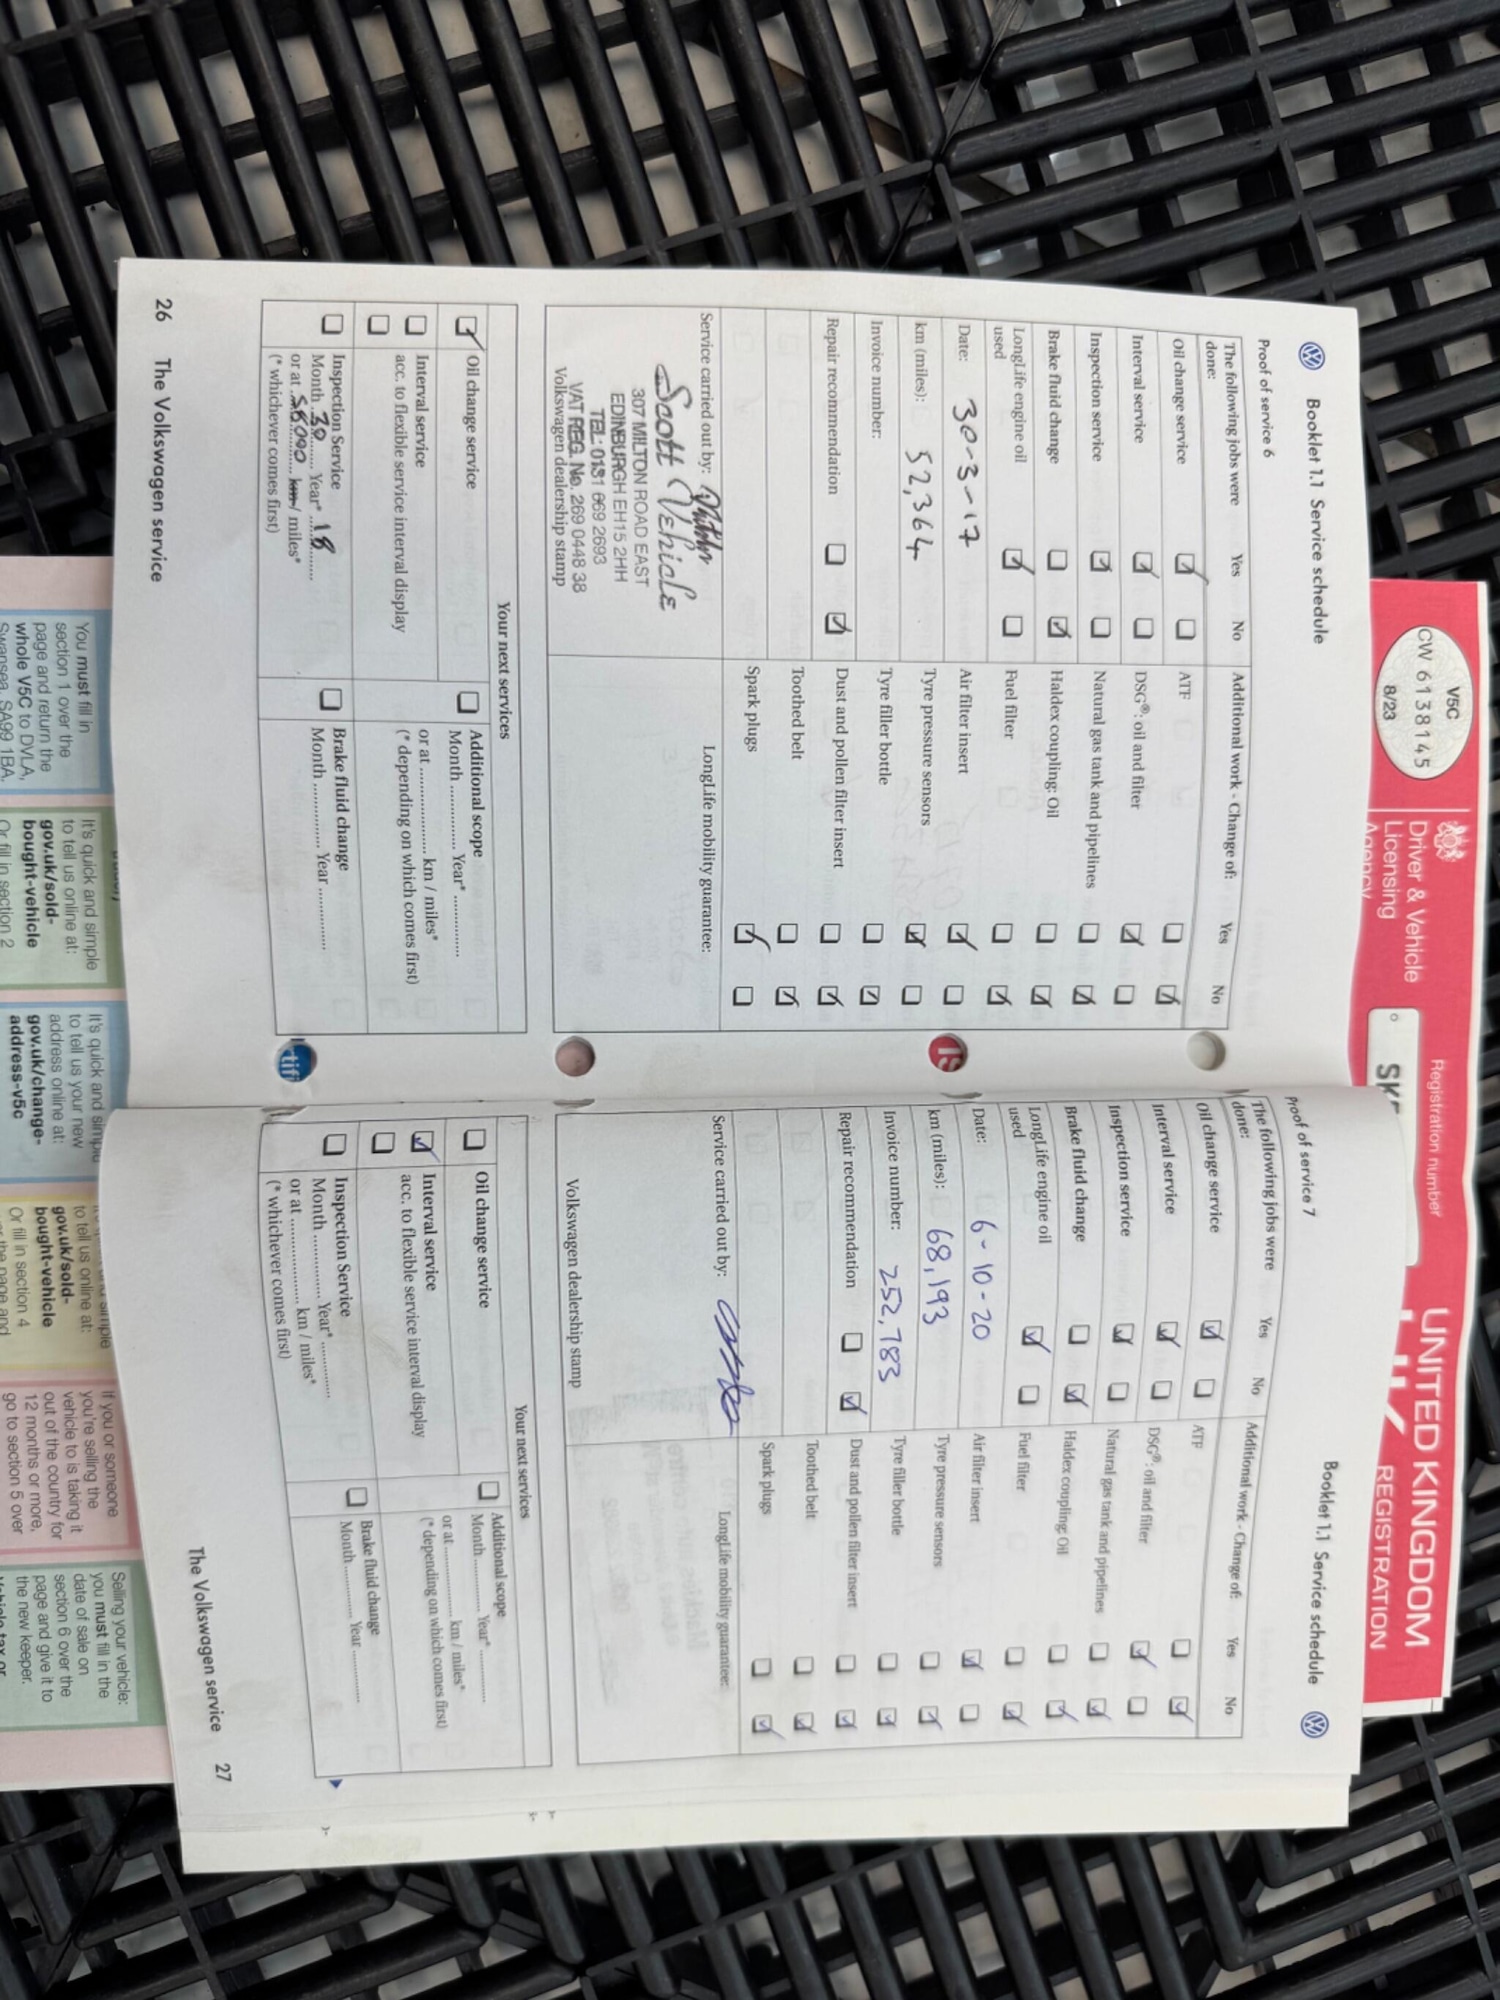 Booklet 1.1 Service schedule
Proof of service 6
The following jobs were done: Yes No
Additional work - Change of: Yes No
Oil change service
ATF
Interval service
DSG®: oil and filter
Inspection service
Natural gas tank and pipelines
Brake fluid change
Haldex coupling: Oil
LongLife engine oil used
Fuel filter
Date: 30-3-17
Air filter insert
km (miles): 52,364
Tyre pressure sensors
Invoice number:
Tyre filler bottle
Repair recommendation
Dust and pollen filter insert
Toothed belt
Spark plugs
Service carried out by:
LongLife mobility guarantee:
Scott Vehicle
307 MILTON ROAD EAST
EDINBURGH EH15 2HH
TEL: 0131 669 2693
VAT REG. No. 269 0448 38
Volkswagen dealership stamp
Your next services
Oil change service
Additional scope
Month ............ Year* ............
or at ............ km / miles*
(* depending on which comes first)
Interval service
acc. to flexible service interval display
Inspection Service
Month 30 Year* 18
or at 56000 km / miles*
(* whichever comes first)
Brake fluid change
Month ............ Year ............
26 The Volkswagen service
Booklet 1.1 Service schedule
Proof of service 7
The following jobs were done: Yes No
Additional work - Change of: Yes No
Oil change service
ATF
Interval service
DSG®: oil and filter
Inspection service
Natural gas tank and pipelines
Brake fluid change
Haldex coupling: Oil
LongLife engine oil used
Fuel filter
Date: 6-10-20
Air filter insert
km (miles): 68,193
Tyre pressure sensors
Invoice number: 252,783
Tyre filler bottle
Repair recommendation
Dust and pollen filter insert
Toothed belt
Spark plugs
Service carried out by:
LongLife mobility guarantee:
Volkswagen dealership stamp
Your next services
Oil change service
Additional scope
Month ............ Year* ............
or at ............ km / miles*
(* depending on which comes first)
Interval service
acc. to flexible service interval display
Inspection Service
Month ............ Year* ............
or at ............ km / miles*
(* whichever comes first)
Brake fluid change
Month ............ Year ............
The Volkswagen service 27
V5C
CW 6138145
8/23
Driver & Vehicle
Licensing
Agency
Registration number
UNITED KINGDOM
REGISTRATION
You must fill in
section 1 over the
page and return the
whole V5C to DVLA,
Swansea, SA99 1BA,
It's quick and simple
to tell us online at:
gov.uk/sold-
bought-vehicle
Or fill in section 2
It's quick and simple
to tell us your new
address online at:
gov.uk/change-
address-v5c
to tell us online at:
gov.uk/sold-
bought-vehicle
Or fill in section 4
If you or someone
you're selling the
vehicle to is taking it
out of the country for
12 months or more,
go to section 5 over
Selling your vehicle:
you must fill in the
date of sale on
section 6 over the
page and give it to
the new keeper.